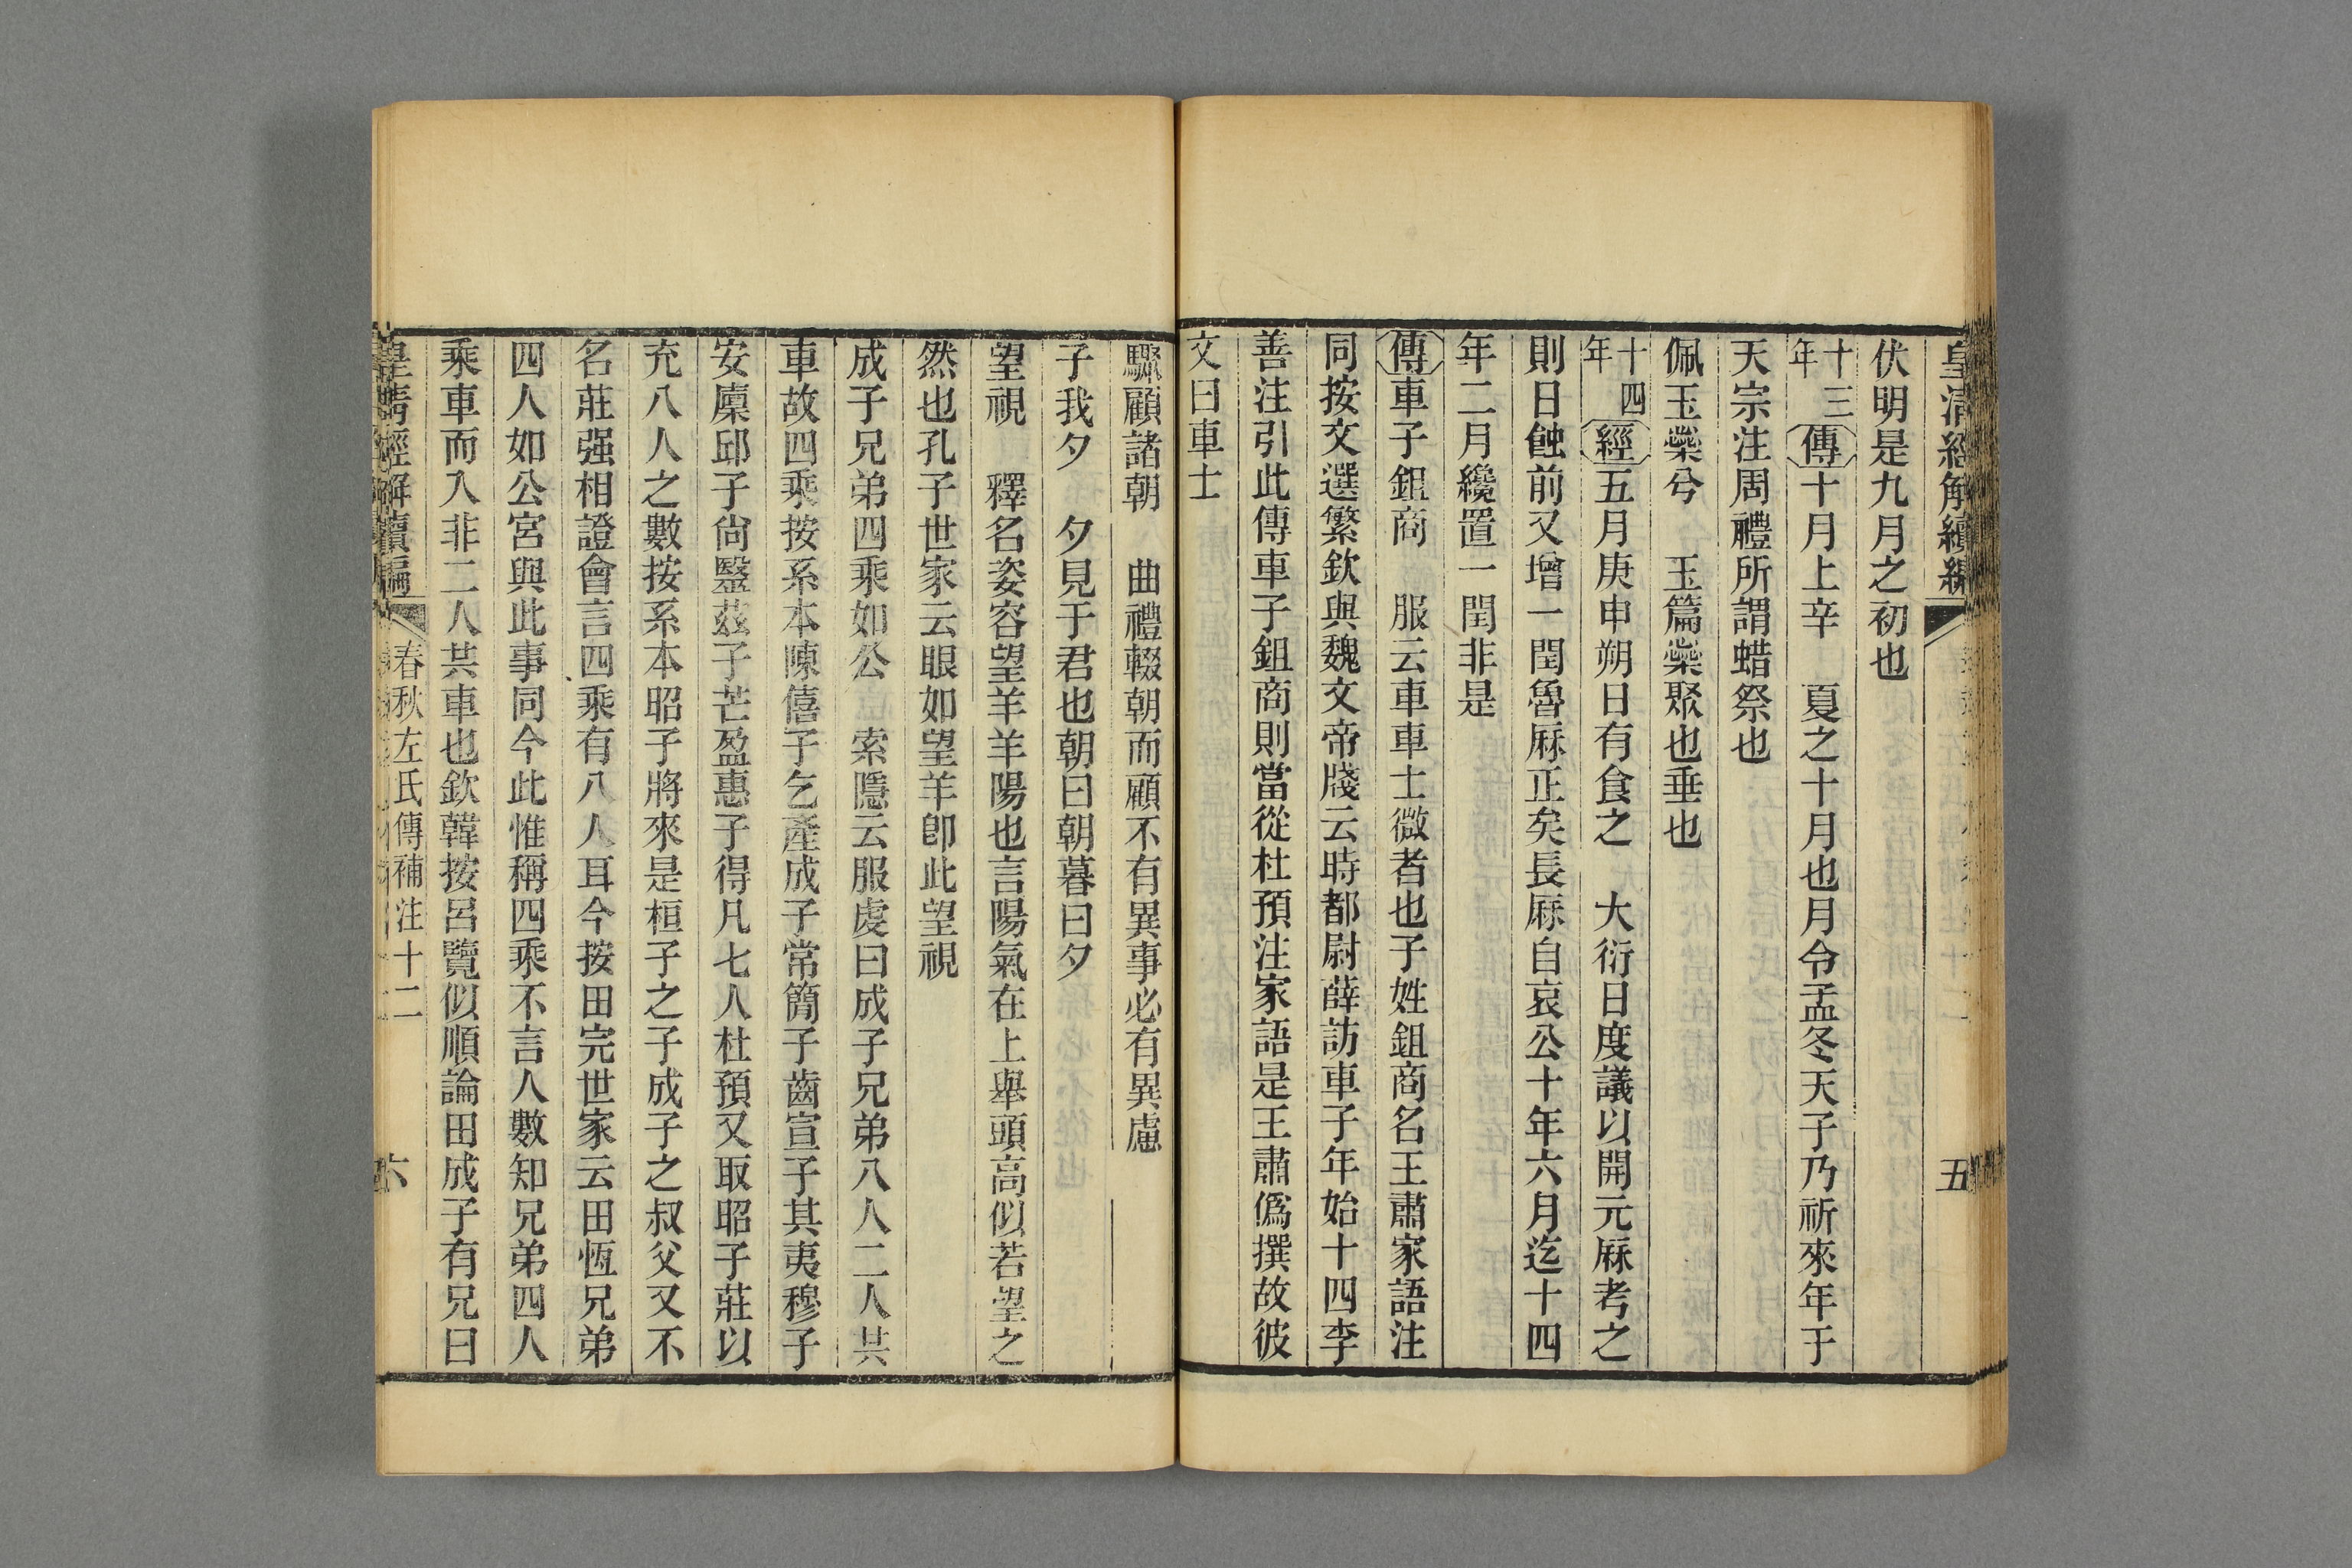 皇清經解續編
五
伏明是九月之初也
十三年傳十月上辛 夏之十月也月令孟冬天子乃祈來年于
天宗注周禮所謂蜡祭也
佩玉橤兮 玉篇橤聚也垂也
十四年經五月庚申朔日有食之 大衍日度議以開元厤考之
則日蝕前又增一閏魯厤正矣長厤自哀公十年六月迄十四
年二月纔置一閏非是
傳車子鉏商 服云車車士微者也子姓鉏商名王肅家語注
同按文選繁欽與魏文帝牋云時都尉薛訪車子年始十四李
善注引此傳車子鉏商則當從杜預注家語是王肅僞撰故彼
文曰車士
驟顧諸朝 曲禮輟朝而顧不有異事必有異慮
子我夕 夕見于君也朝曰朝暮曰夕
望視 釋名姿容望羊羊陽也言陽氣在上舉頭高似若望之
然也孔子世家云眼如望羊卽此望視
成子兄弟四乘如公 索隱云服虔曰成子兄弟八人二人共
車故四乘按系本陳僖子乞產成子常簡子齒宣子其夷穆子
安廩邱子尙毉茲子芒盈惠子得凡七人杜預又取昭子莊以
充八人之數按系本昭子將來是桓子之子成子之叔父又不
名莊强相證會言四乘有八人耳今按田完世家云田恆兄弟
四人如公宮與此事同今此惟稱四乘不言人數知兄弟四人
乘車而入非二人共車也欽韓按呂覽似順論田成子有兄曰
皇清經解續編 春秋左氏傳補注十二 六